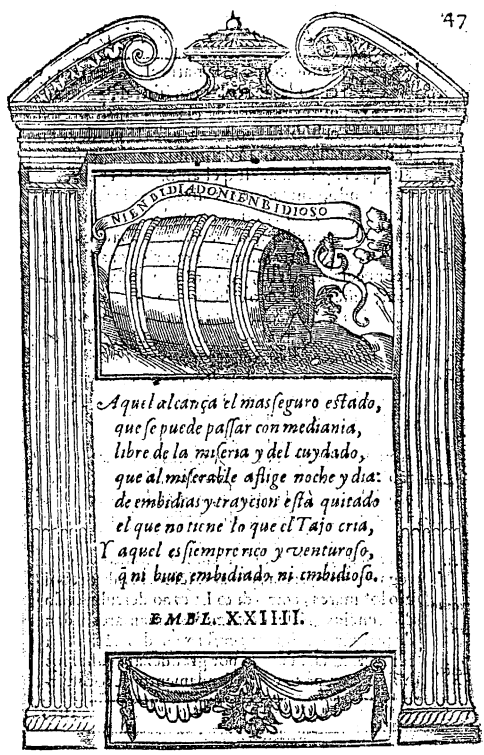 47
NIENBIDIADONIENBIDIOSO
Aquel alcança el mas seguro estado,
que se puede passar con mediania,
libre de la miseria y del cuydado,
que al miserable aflige noche y dia:
de embidias y traycion està quitado
el que no tiene lo que el Tajo cria,
Y aquel es siempre rico y venturoso,
q̃ ni biue embidiado ni embidioso.
EMBL. XXIIII.